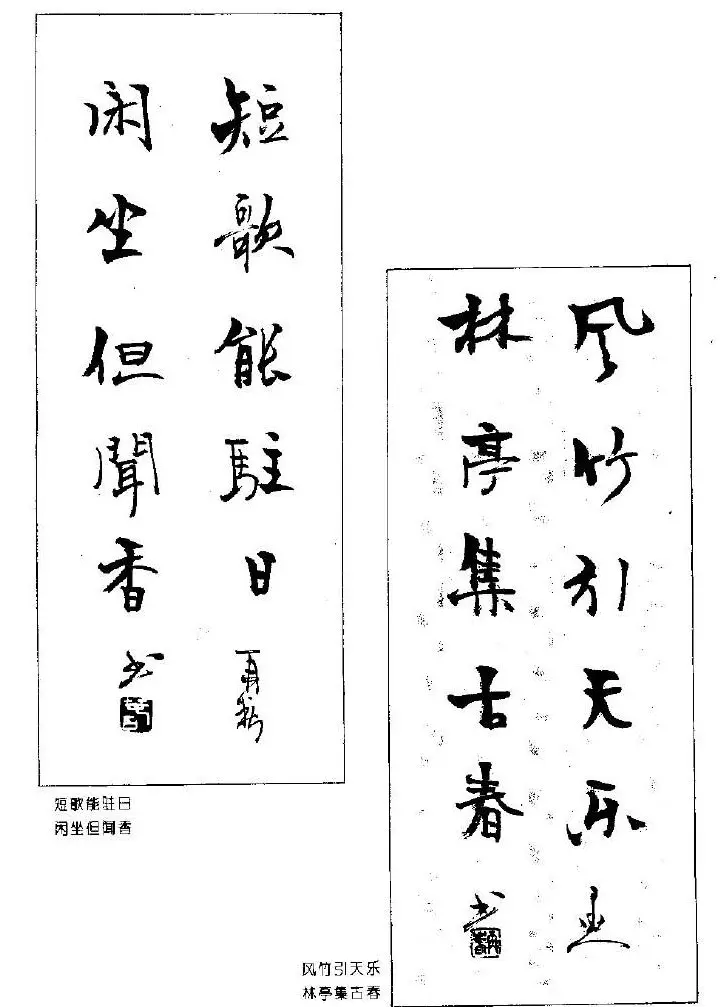 短歌能驻日
闲坐但聞香
书
短歌能驻日
闲坐但闻香
风竹引天乐
林亭集古春
书
风竹引天乐
林亭集古春